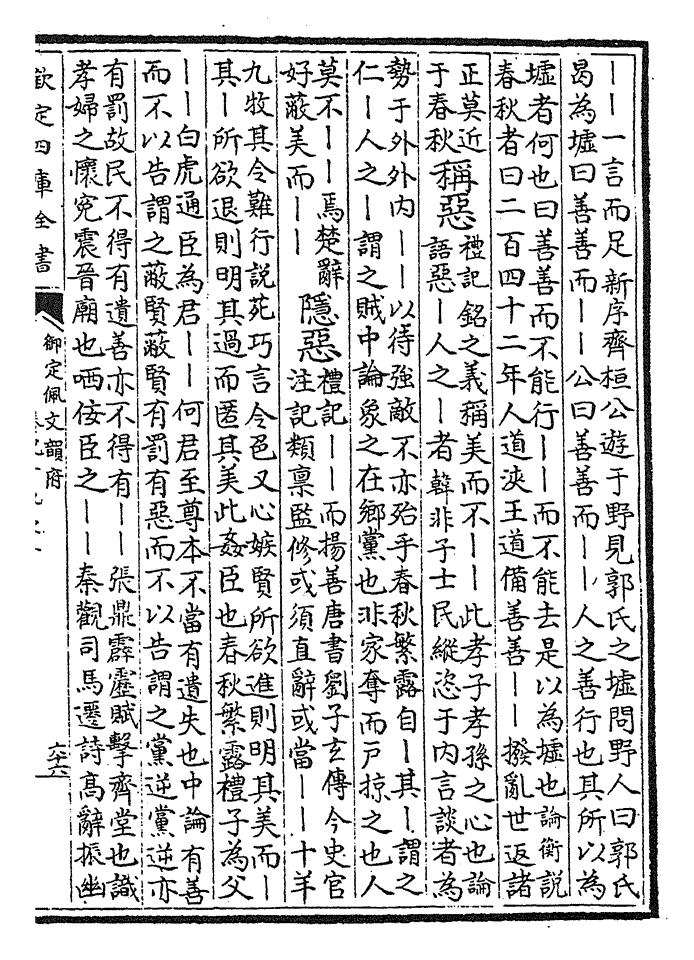 ——一言而足新序齊桓公遊于野見郭氏之墟問野人曰郭氏
曷為墟曰善善而——公曰善善而——人之善行也其所以為
墟者何也曰善善而不能行——而不能去是以為墟也論衡說
春秋者曰二百四十二年人道浹王道備善善——撥亂世返諸
正莫近
于春秋
稱惡
禮記銘之義稱美而不——此孝子孝孫之心也論
語惡—人之—者韓非子士民縱恣于内言談者為
勢于外外内——以待強敵不亦殆乎春秋繁露自—其—謂之
仁—人之—謂之賊中論象之在鄉黨也非家奪而戸掠之也人
莫不——焉楚辭
好蔽美而——
隱惡
禮記——而揚善唐書劉子玄傳今史官
注記類稟監修或須直辭或當——十羊
九牧其令難行說死巧言令色又心嫉賢所欲進則明其美而—
其—所欲退則明其過而匿其美此姦臣也春秋繁露禮子為父
——白虎通臣為君——何君至尊本不當有遺失也中論有善
而不以告謂之蔽賢蔽賢有罰有惡而不以告謂之黨逆黨逆亦
有罰故民不得有遺善亦不得有——張鼎霹靂賦擊齊堂也識
孝婦之懷冤震晉廟也哂侫臣之——秦觀司馬遷詩高辭振幽
欽定四庫全書
御定佩文韻府
六十六